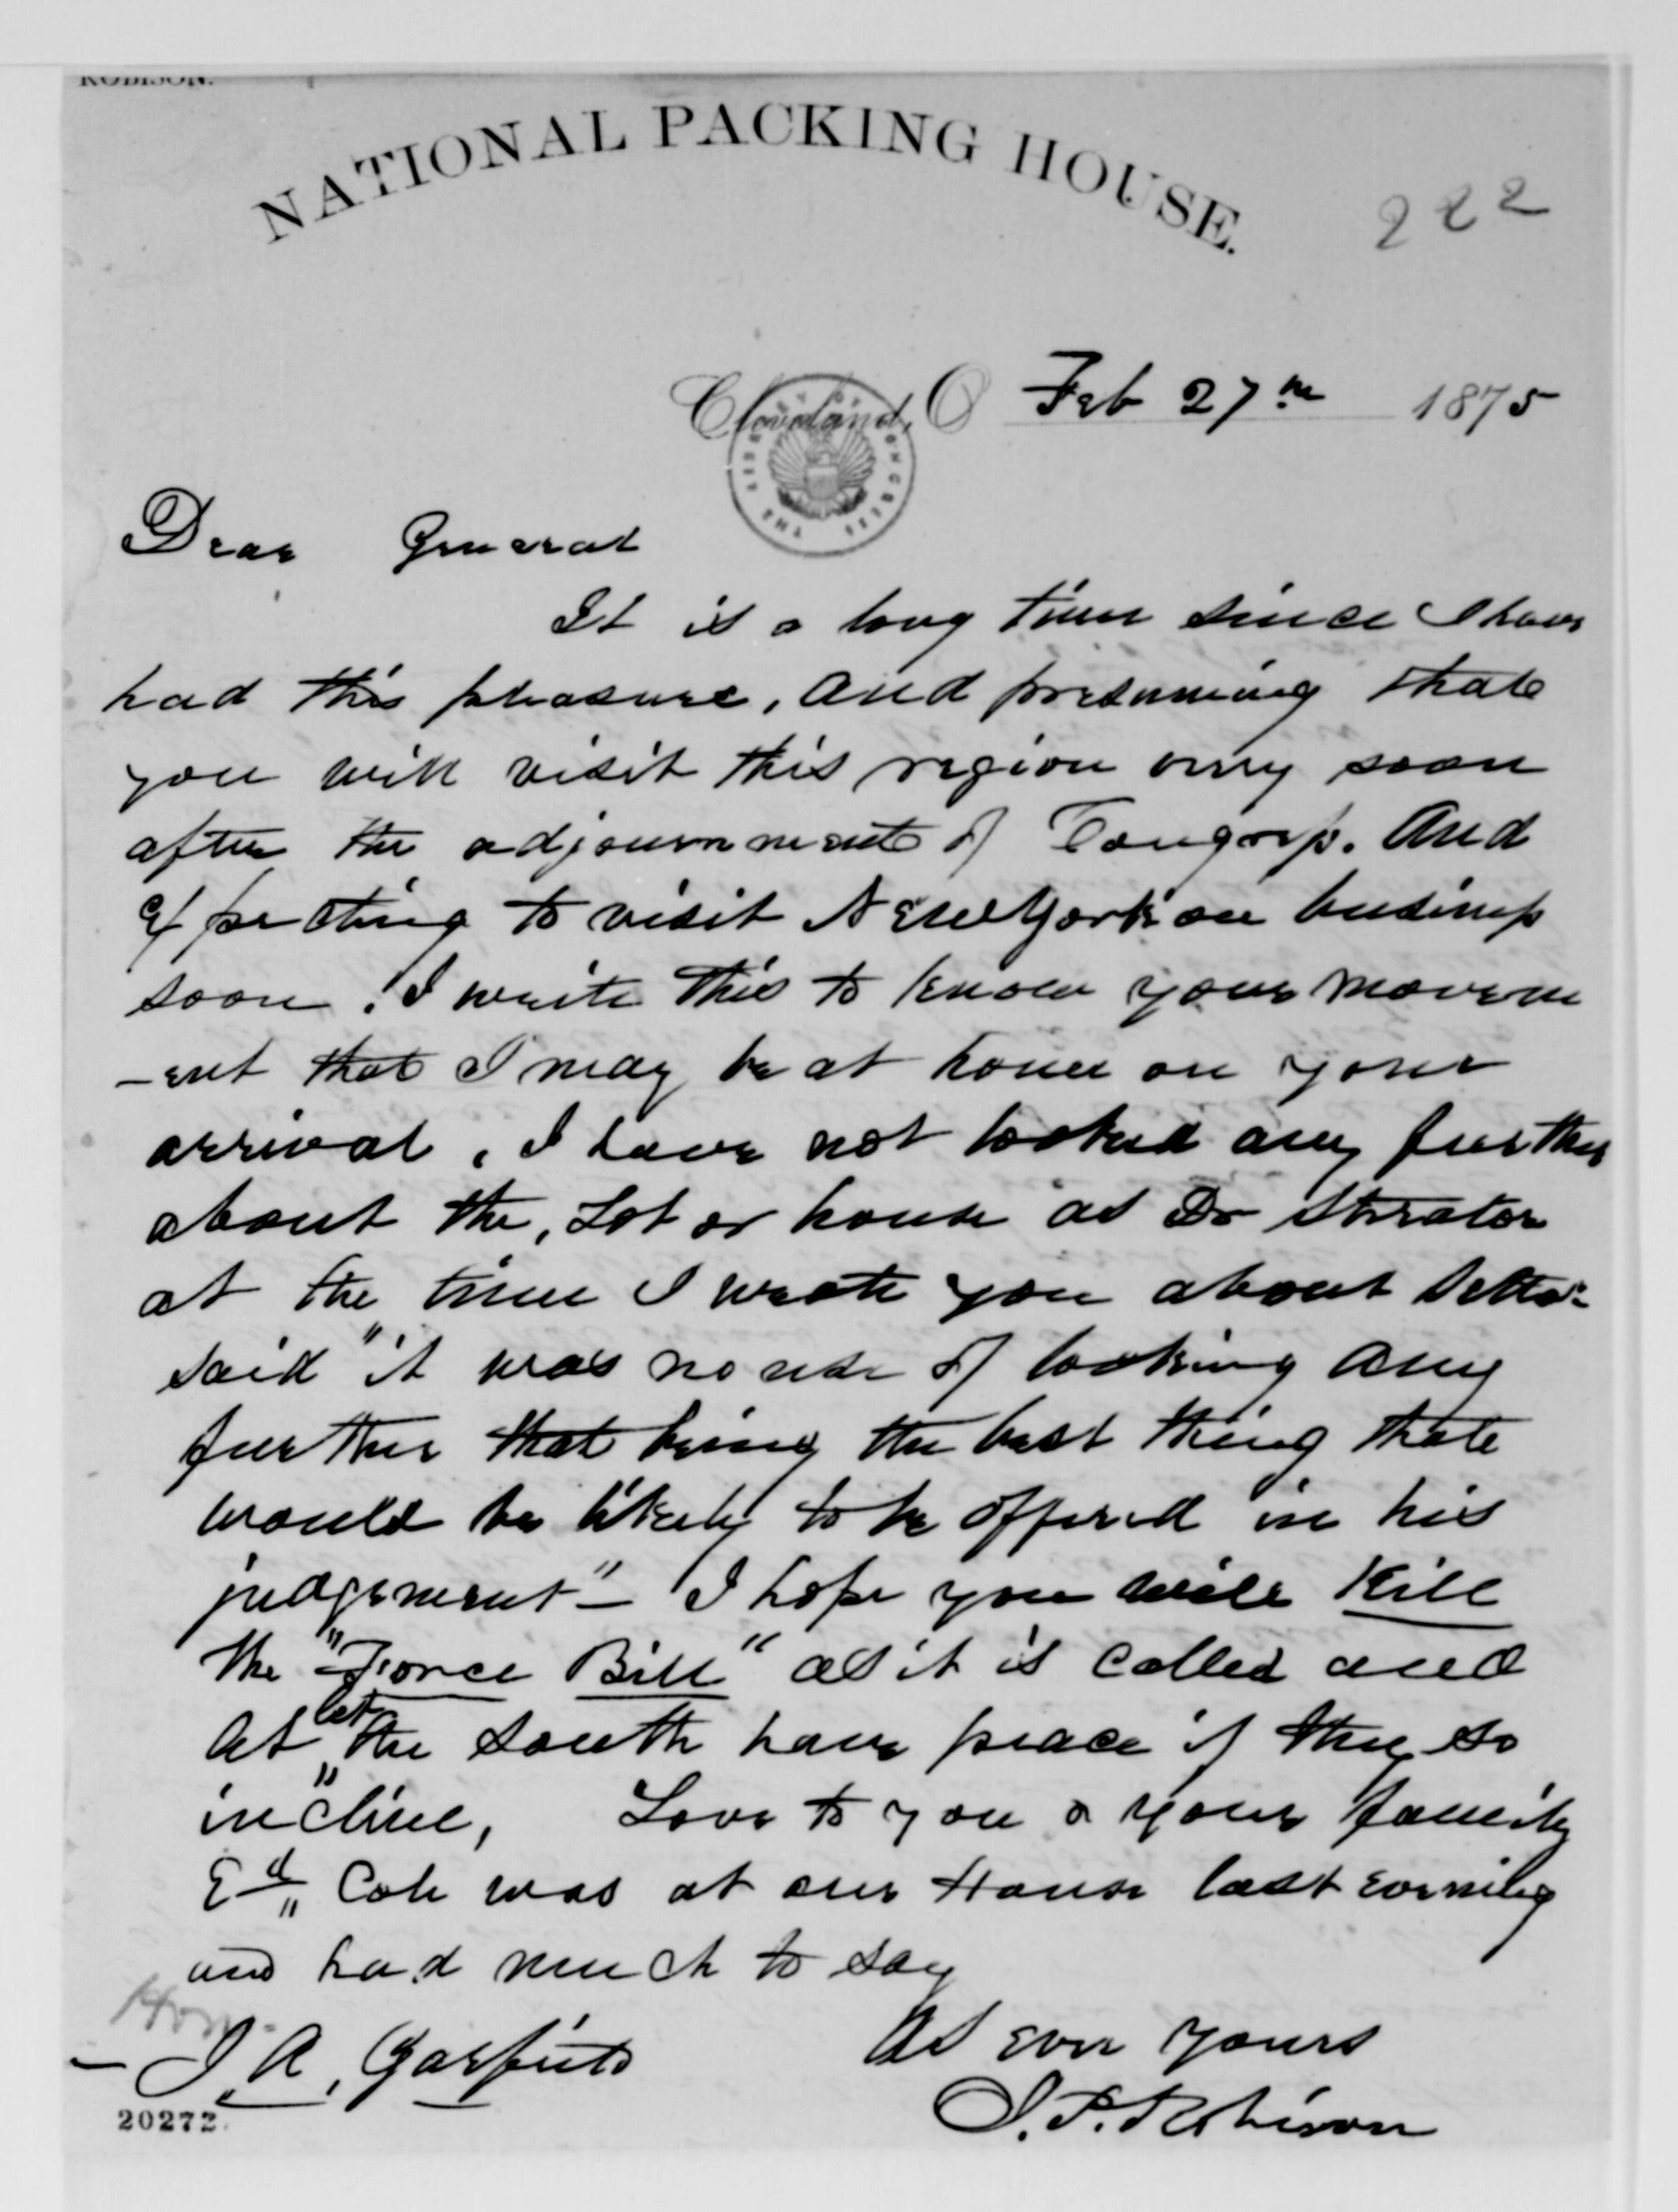 ROBISON.
NATIONAL PACKING HOUSE.
222
Cleveland, O Feb 27th 1875
Dear General
It is a long time since I have
had this pleasure, and presuming that
you will visit this region very soon
after the adjournment of Congress. And
Expecting to visit New York on business
soon. I write this to know your movem
-ent that I may be at home on your
arrival, I have not looked any further
about the, Lot or house as Dr Streator
at the time I wrote you about
said "it was no use of looking any
further that being the best thing that
would be likely to be offered in his
judgement" - I hope you will Kill
the "Force Bill" as it is called and
let the South have peace if they so
incline, Love to you & your family
Ed Cole was at our House last evening
and had much to say
As ever yours
Hon.
- J. A. Garfield
J. P. Robison
20272.